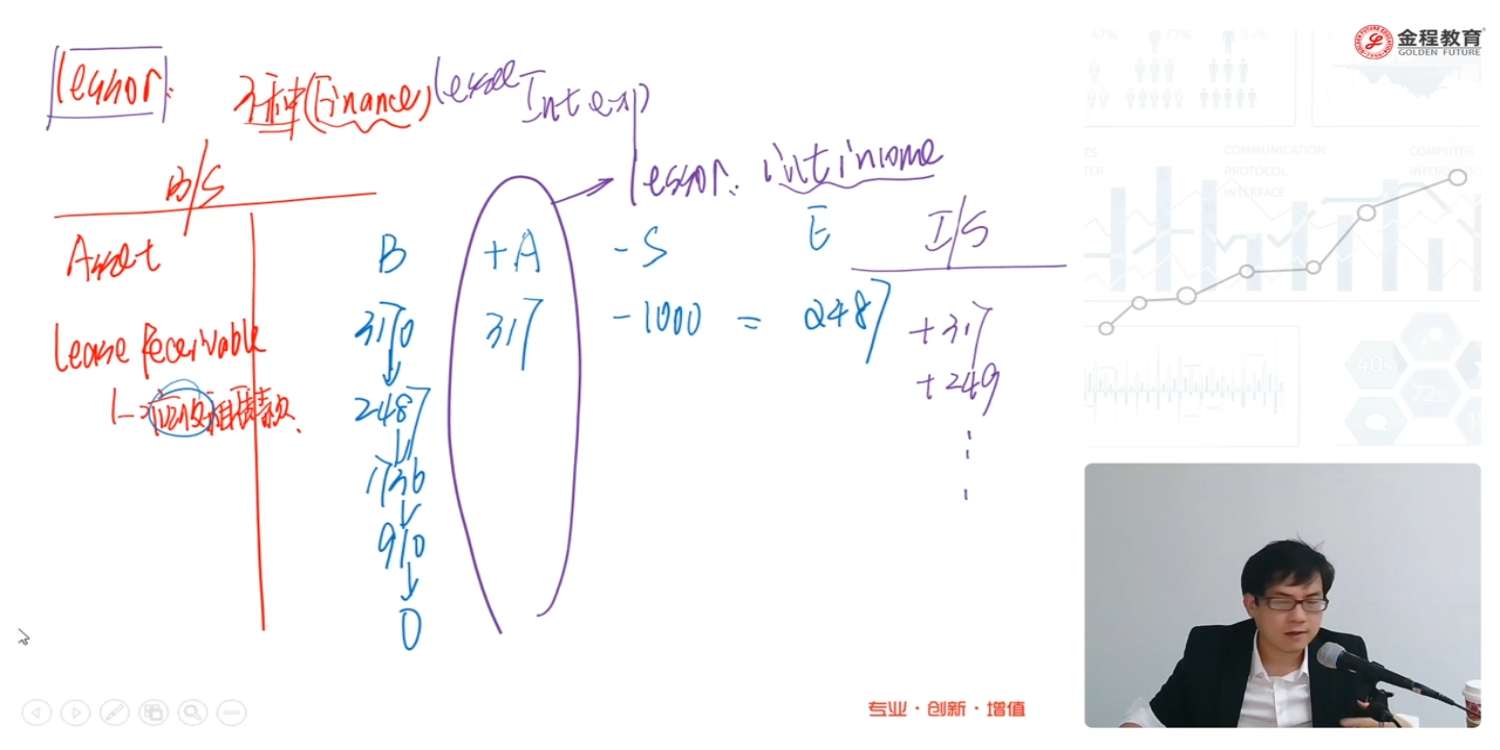 金程教育
GOLDEN FUTURE
lessor.
3种(Finance) lessee Int exp
lessor. int income
B/S
Asset
B +A -S E I/S
3170 317 -1000 = 2487 +317
Lease Receivable
+249
2487
1736
910
0
COMMUNICATION
PROTOCOL
INTERFACE
专业·创新·增值